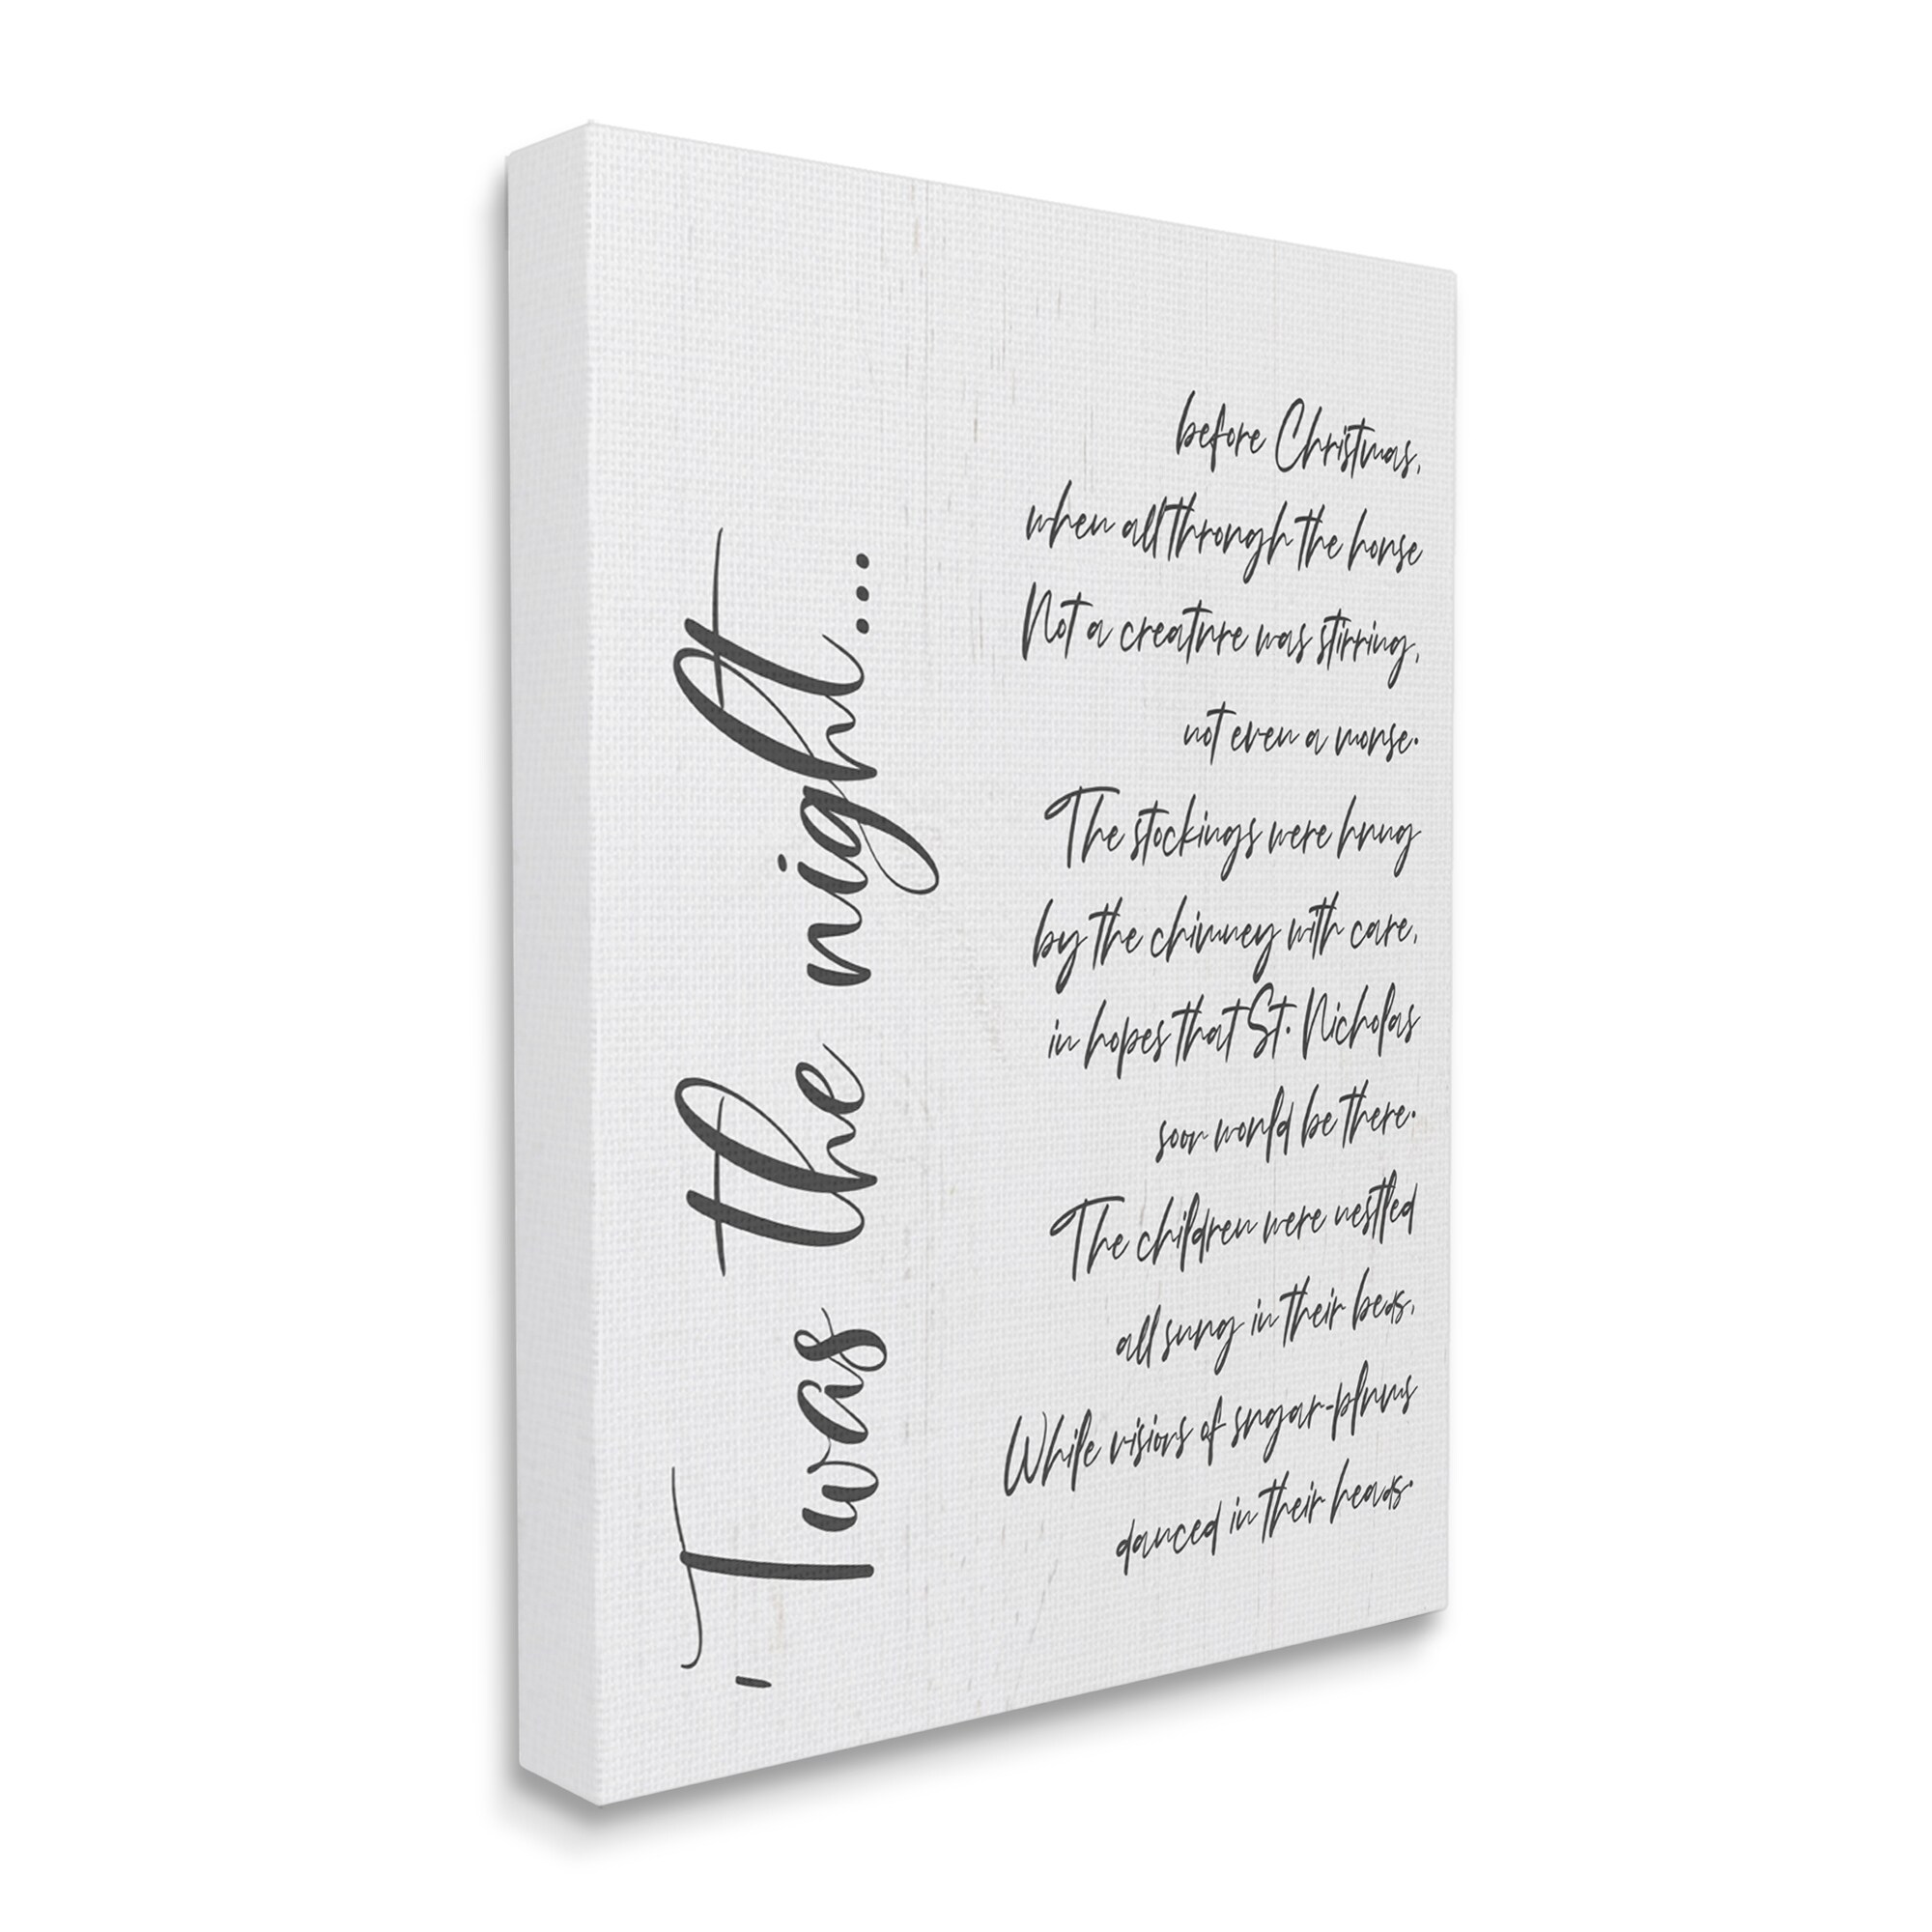 'Twas the night...
before Christmas,
when all through the house
Not a creature was stirring,
not even a mouse.
The stockings were hung
by the chimney with care,
in hopes that St. Nicholas
soon would be there.
The children were nestled
all snug in their beds,
While visions of sugar-plums
danced in their heads.